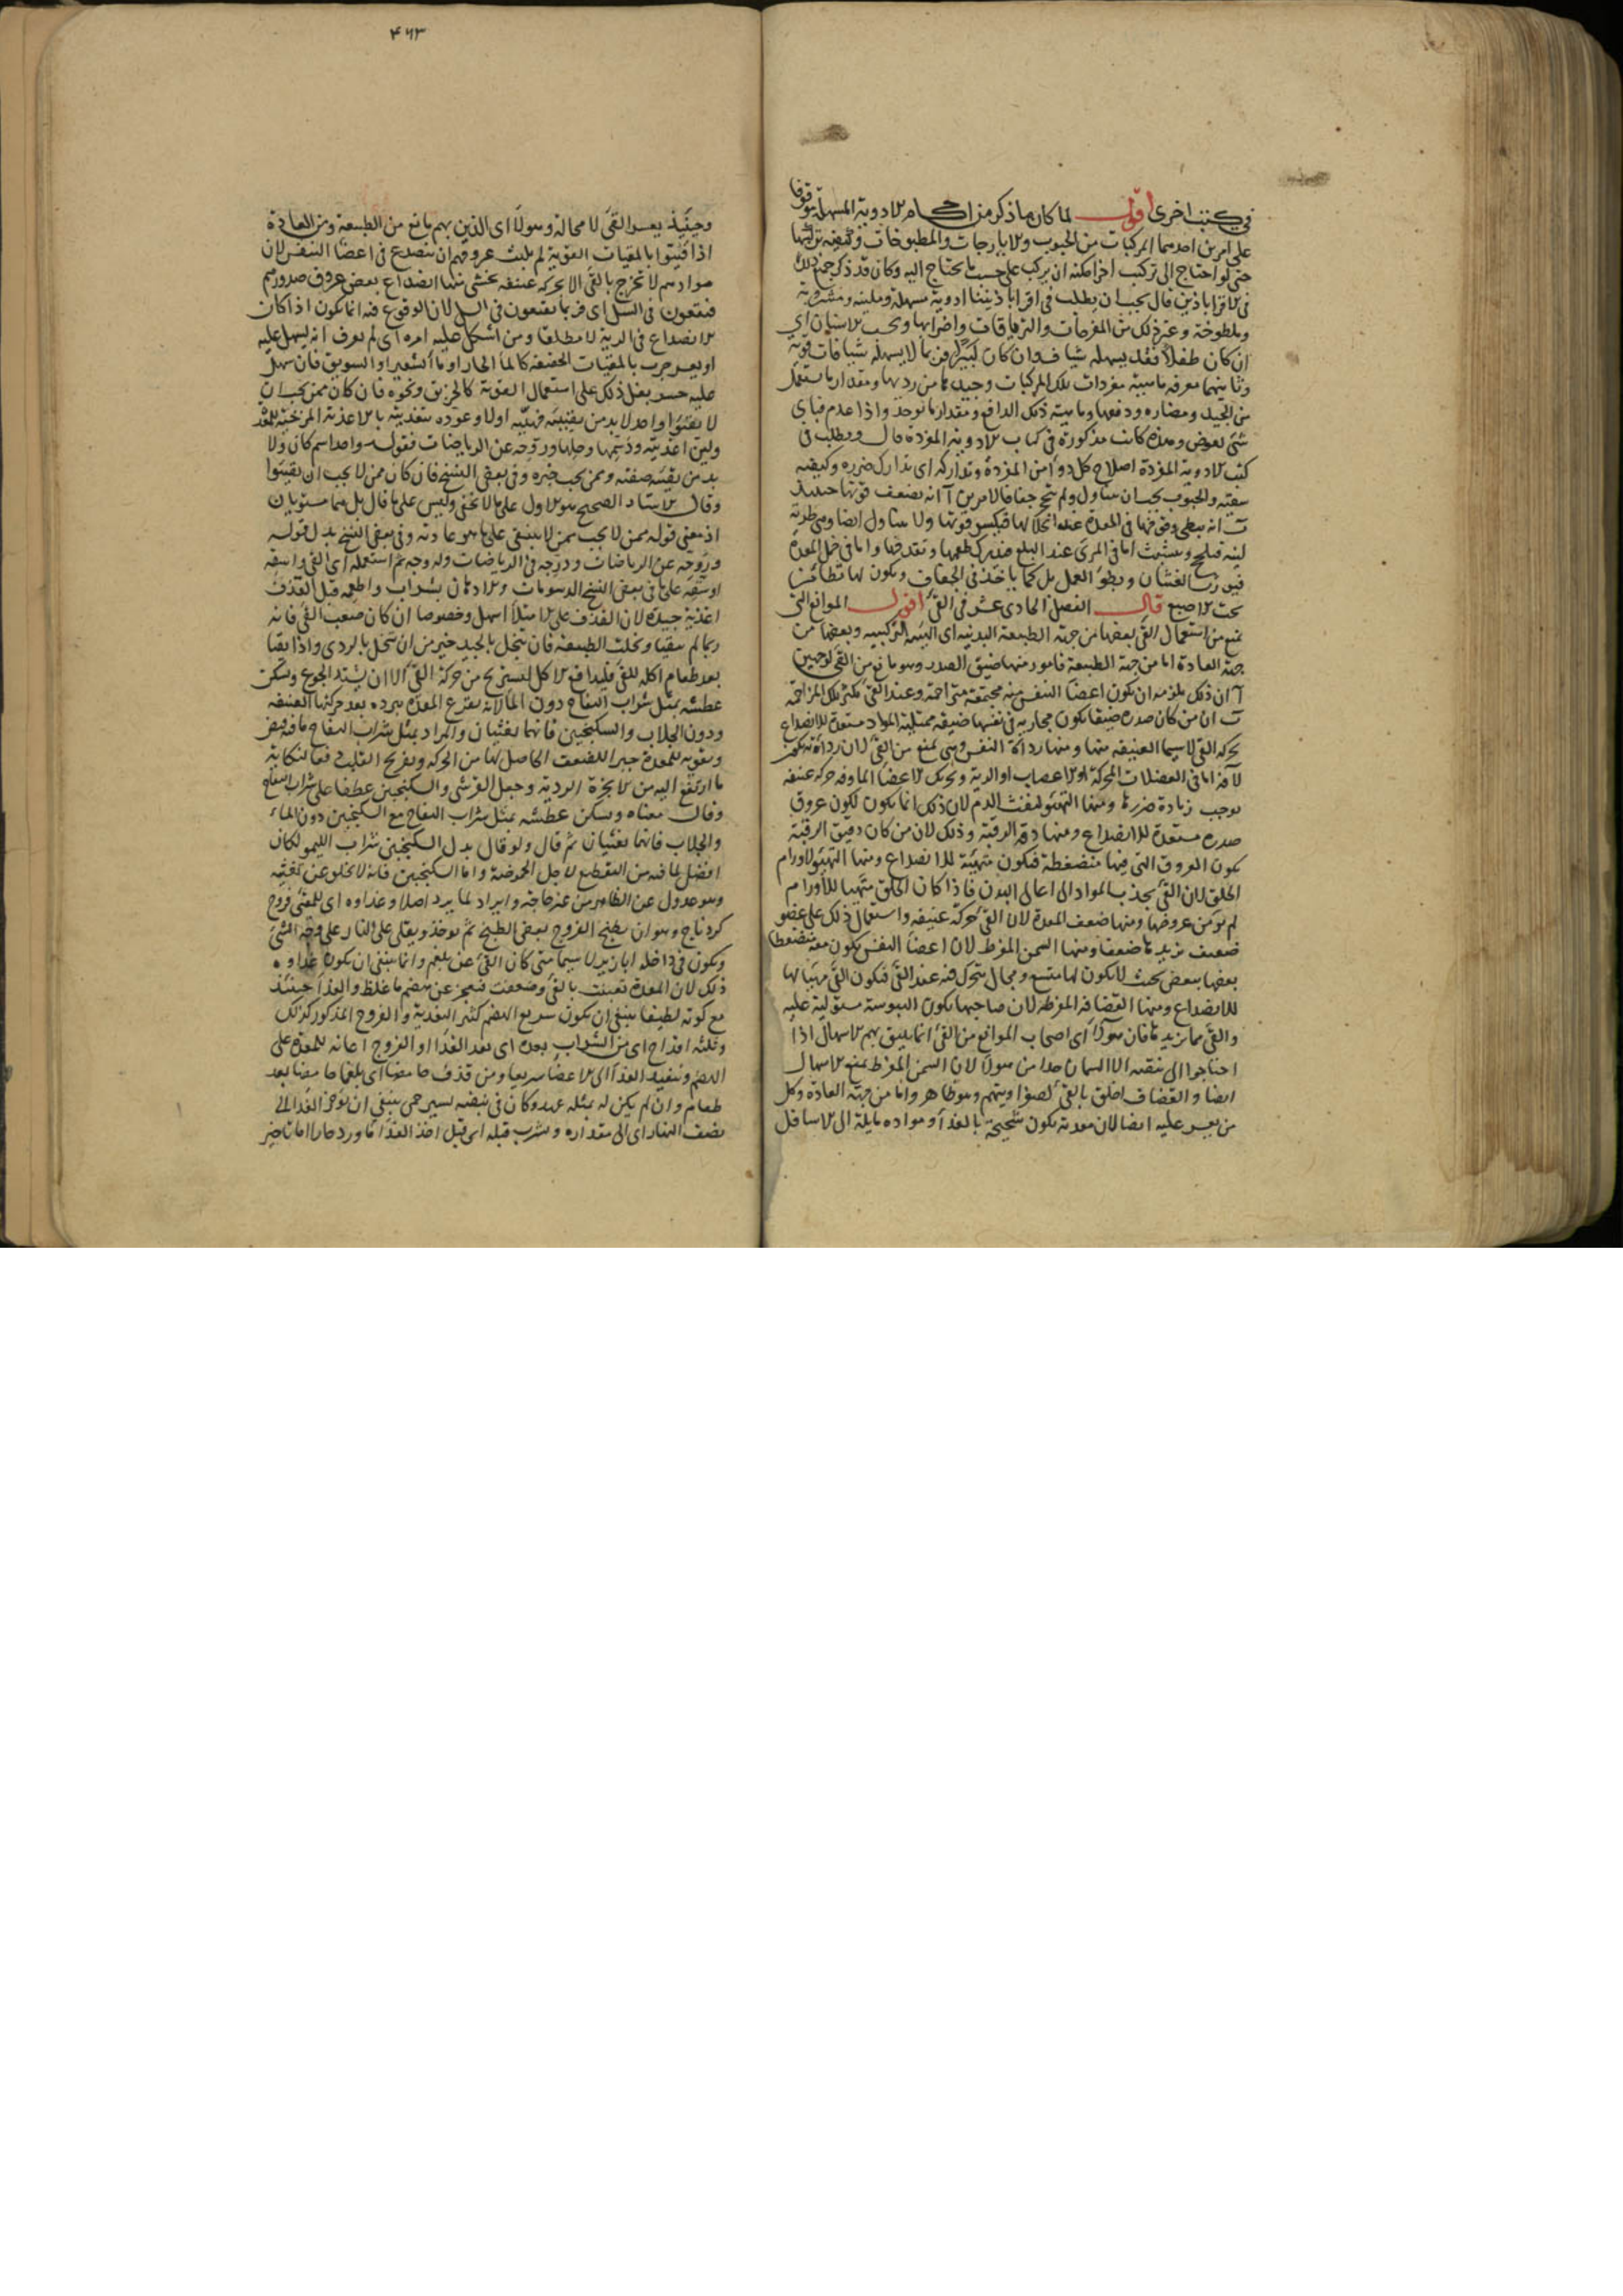 في كتب اخرى اقول لما كان ما ذكر من احكام الادوية المسهلة موقوفا
على امرين احدهما المركبات من الحبوب والايارجات والمطبوخات وكيفية تركيبها
حتى لو احتاج الى تركيب اخر امكنه ان يركب على حسب ما يحتاج اليه وكان قد ذكر جميع ذلك
في الاقراباذين قال يجب ان يطلب في اقراباذيننا ادوية مسهلة وملينة ومشروبة
وملطوخة وغير ذلك من المفرحات والترياقات واضرابها وبحسب الاسنان اي
ان كان طفلا فقد يسهله شياف وان كان كبيرا فربما لا يسهله شيافات قوية
وثانيهما معرفة ماهية مفردات تلك المركبات وجيدها من رديها ومقدار ما يستعمل
من الجيد ومضاره ودفعها وماهية ذلك الدافع ومقدار ما يوخذ واذا عدم فباي
شئ يعوض وهذه كانت مذكورة في كتاب الادوية المفردة قال ويطلب في
كتب الادوية المفردة اصلاح كل دواء من المفردة وتداركه اي تدارك ضرره وكيفية
سقيه والحبوب يجب ان يتناول ولم تجف جفافا لامرين آ انه يضعف قوتها حينئذ
ب انه يبطى وقوفها في المعدة عند انحلالها فيكسر قوتها ولا يتناول ايضا وهي طرية
لينة فيلحج ويتشبث اما في المرئ عند البلع فيدرك طعمها وتقذفها واما في خمل المعدة
فيورث الغثيان وبطؤ العمل بل كما ياخذ في الجفاف ويكون لها تطامن
تحت الاصبع قال الفصل الحادي عشر في القئ اقول الموانع التي
تمنع من استعمال القئ بعضها من جهة الطبيعة البدنية اي الهيئة التركيبية وبعضها من
جهة العادة اما من جهة الطبيعة فامور منها ضيق الصدر وهو مانع من القئ لوجهين
آ ان ذلك يلزمه ان يكون اعضاء النفس منه مجتمعة متزاحمة وعند القئ يكثر تلك المزاحمة
ب ان من كان صدره ضيقا يكون مجاريه في نفسها ضيقة ممتلية المواد مستعدة للانصداع
بحركة القئ لا سيما العنيفة منها ومنها رداءة النفس وهي تمنع من القئ لان رداءته يكون
لآفة اما في العضلات المحركة او الاعصاب او الرية وتحريك الاعضاء الماوفة حركة عنيفة
يوجب زيادة ضررها ومنها التهيؤ لنفث الدم لان ذلك انما يكون لكون عروق
صدره مستعدة للانصداع ومنها دقة الرقبة وذلك لان من كان دقيق الرقبة
يكون العروق التي فيها منضغطة فيكون متهيئة للانصداع ومنها التهيؤ لاورام
الحلق لان القئ يجذب المواد الى اعالي البدن فاذا كان الحلق متهيا للاورام
لم يؤمن عروضها ومنها ضعف المعدة لان القئ حركة عنيفة واستعمال ذلك على عضو
ضعيف يزيدها ضعفا ومنها السمن المفرط لان اعضاء النفس يكون معه منضغطا
بعضها ببعض بحيث لا يكون لها متسع ومجال يتحرك فيه عند القئ فيكون القئ مهيئا لها
للانصداع ومنها القضافة المفرطة لان صاحبها يكون اليبوسة مستولية عليه
والقئ مما يزيدها فان هؤلاء اي اصحاب الموانع من القئ انما يليق بهم الاسهال اذا
احتاجوا الى تنقية الا السمان جدا من هؤلاء لان السمن المفرط يمنع الاسهال
ايضا والقضاف اخلق بالقئ لصفراويتهم وهو ظاهر واما من جهة العادة وكل
من يعسر عليه ايضا لان معدته يكون شحيحة بالغذاء او مواده مايلة الى الاسافل
٤٦٣
وحينئذ يعسر القئ لا محالة وهولاء اي الذين بهم مانع من الطبيعة ومن العادة
اذا قيئوا بالمقيات القوية لم يلبث عروقهم ان تنصدع في اعضاء النفس لان
موادهم لا تخرج بالقئ الا بحركة عنيفة يخشى منها انصداع بعض عروق صدورهم
فيقعون في السل اي فربما يقعون في السل لان الوقوع فيه انما يكون اذا كان
الانصداع في الرية لا مطلقا ومن اشكل عليه امره اي لم يعرف انه يسهل عليه
او يعسر جرب بالمقيات الخفيفة كالماء الحار او ماء الشعير او السويق فان سهل
عليه حسر بعد ذلك على استعمال القوية كالخربق ونحوه فان كان ممن يجب ان
لا يقيئوا واحد لا بد من تقيئته فهيئه اولا وعوده بتغذيته بالاغذية المرخية للمعدة
ولين اغذيته ودسمها وحلها وروحه عن الرياضات فقوله واحد اسم كان ولا
بد من تقيئه صفته وممن يجب خبره وفي بعض النسخ فان كان ممن لا يجب ان يقيئوا
وقال الاستاد الصحيح هو الاول على ما لا يخفى وليس على ما قال بل هما مستويان
اذ معنى قوله ممن لا يجب ممن لا ينبغي على ما هو عادته وفي بعض النسخ بدل قوله
وروحه عن الرياضات ودرجه في الرياضات وله وجه ثم استعمله اي القئ واسقه
او سقه على ما في بعض النسخ الدسومات والادهان بشراب واطعمه قبل القذف
اغذية جيدة لان القذف على الامتلاء اسهل وخصوصا ان كان صعب القئ فانه
ربما لم يتقيا ونحلت الطبيعة فان ينحل بالجيد خير من ان ينحل بالردي واذا تقيا
بعد طعام اكله للقئ فليدافع الاكل ليستريح من حركة القئ الا ان يشتد الجوع وسكن
عطشه بمثل شراب التفاح دون الماء لانه يقرع المعدة ببرده بعد حركتها العنيفة
ودون الجلاب والسكنجبين فانهما يغثيان والمراد بمثل شراب التفاح ما فيه قبض
وتقوية للمعدة جبرا للضعف الحاصل لها من الحركة وتفريح القلب دفعا لنكاية
ما ارتفع اليه من الابخرة الردية وجعل القرشي والسكنجبين عطفا على شراب التفاح
وقال معناه ويسكن عطشه بمثل شراب التفاح مع السكنجبين دون الماء
والجلاب فانهما يغثيان ثم قال ولو قال بدل السكنجبين شراب الليمو لكان
افضل لما فيه من التقطيع لاجل الحموضة واما السكنجبين فانه لا يخلو عن تغثية
وهو عدول عن الظاهر من غير حاجة وايراد لما يرد اصلا وغذاوه اي للمقئ فروج
كردناج وهو ان يطبخ الفروج بعض الطبخ ثم يوخذ ويقلى على النار على وجه الشئ
ويكون في داخله ابازير لا سيما متى كان القئ عن بلغم وانما ينبغي ان يكون غذاوه
ذلك لان المعدة تعبت بالقئ وضعفت فيعجز عن هضم ما غلظ والغذاء حينئذ
مع كونه لطيفا ينبغي ان يكون سريع الهضم كثير التغذية والفروج المذكور كذلك
وثلثة اقداح اي من الشراب بعده اي بعد الغذاء او الفروج اعانة للمعدة على
الهضم وتنفيذ الغذاء الى الاعضاء سريعا ومن قذف حامضا اي بلغما حامضا بعد
طعام وان لم يكن له بمثله عهد وكان في نبضه يسير حمى ينبغي ان يوخر الغذاء الى
نصف النهار اي الى مقداره ويشرب قبله اي قبل اخذ الغذاء ماء ورد حارا اما تاخير